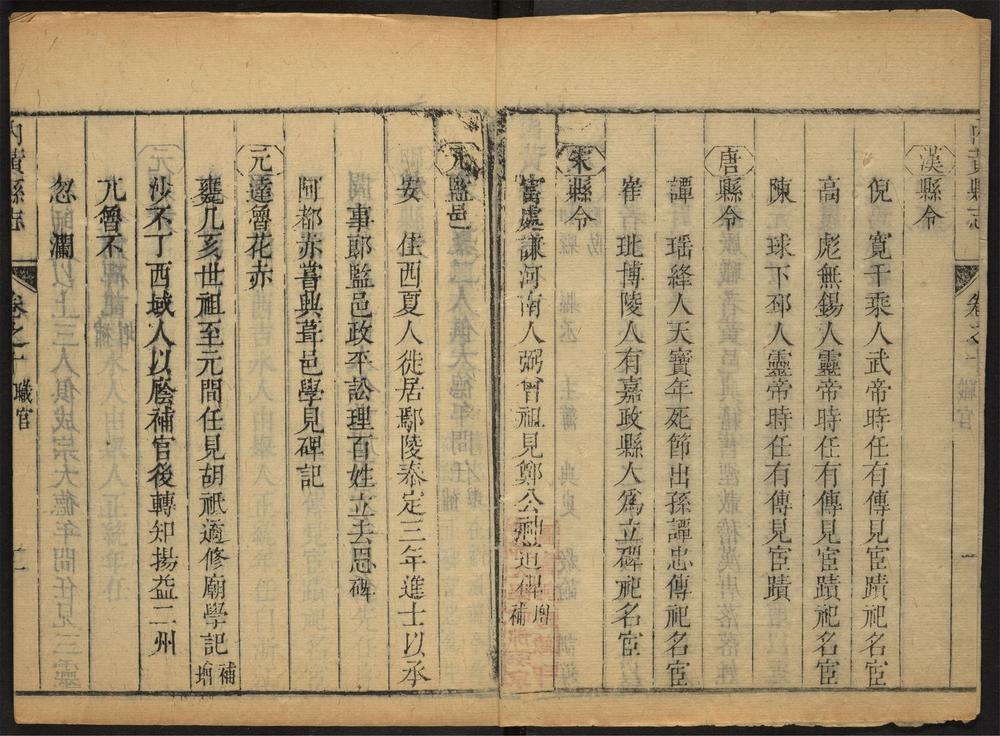 漢縣令
倪　寬千乘人武帝時任有傳見宦蹟祀名宦
高　彪無錫人靈帝時任有傳見宦蹟祀名宦
陳　球下邳人靈帝時任有傳見宦蹟
唐縣令
譚　瑶絳人天寶年死節出孫譚忠傳祀名宦
崔　玭博陵人有嘉政縣人爲立碑祀名宦
宋縣令
富處謙河南人弼曾祖見鄭公神道碑增補
元監邑
安　住西夏人徙居鄢陵泰定三年進士以承
事郎監邑政平訟理百姓立去思碑
阿都赤嘗興葺邑學見碑記
元達魯花赤
甕几亥世祖至元間任見胡祗遹修廟學記補增
沙不丁西域人以廕補官後轉知揚益二州
兀魯不
忽　瀾
內黃縣志　卷之十　職官